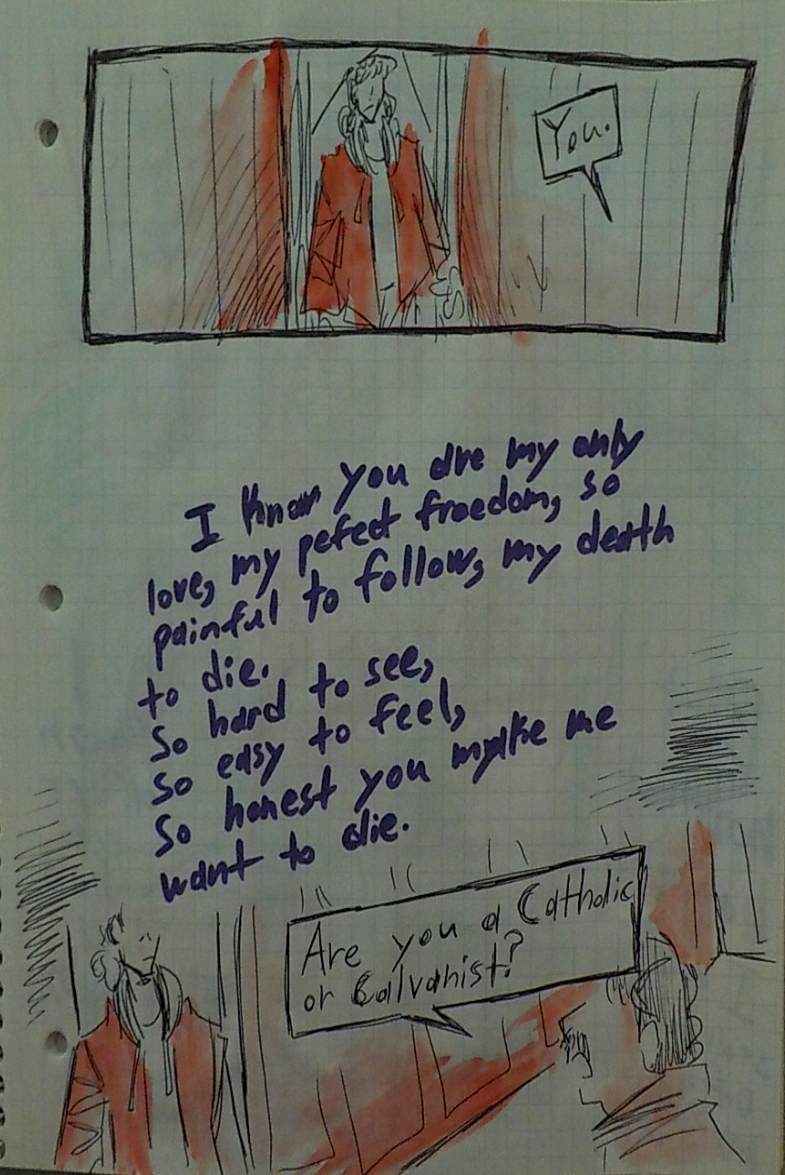 You.
I know you are my only
love, my pefect freedom, so
painful to follow, my death
to die.
So hard to see,
so easy to feel,
so honest you make me
want to die.
Are you a Catholic
or Calvanist?